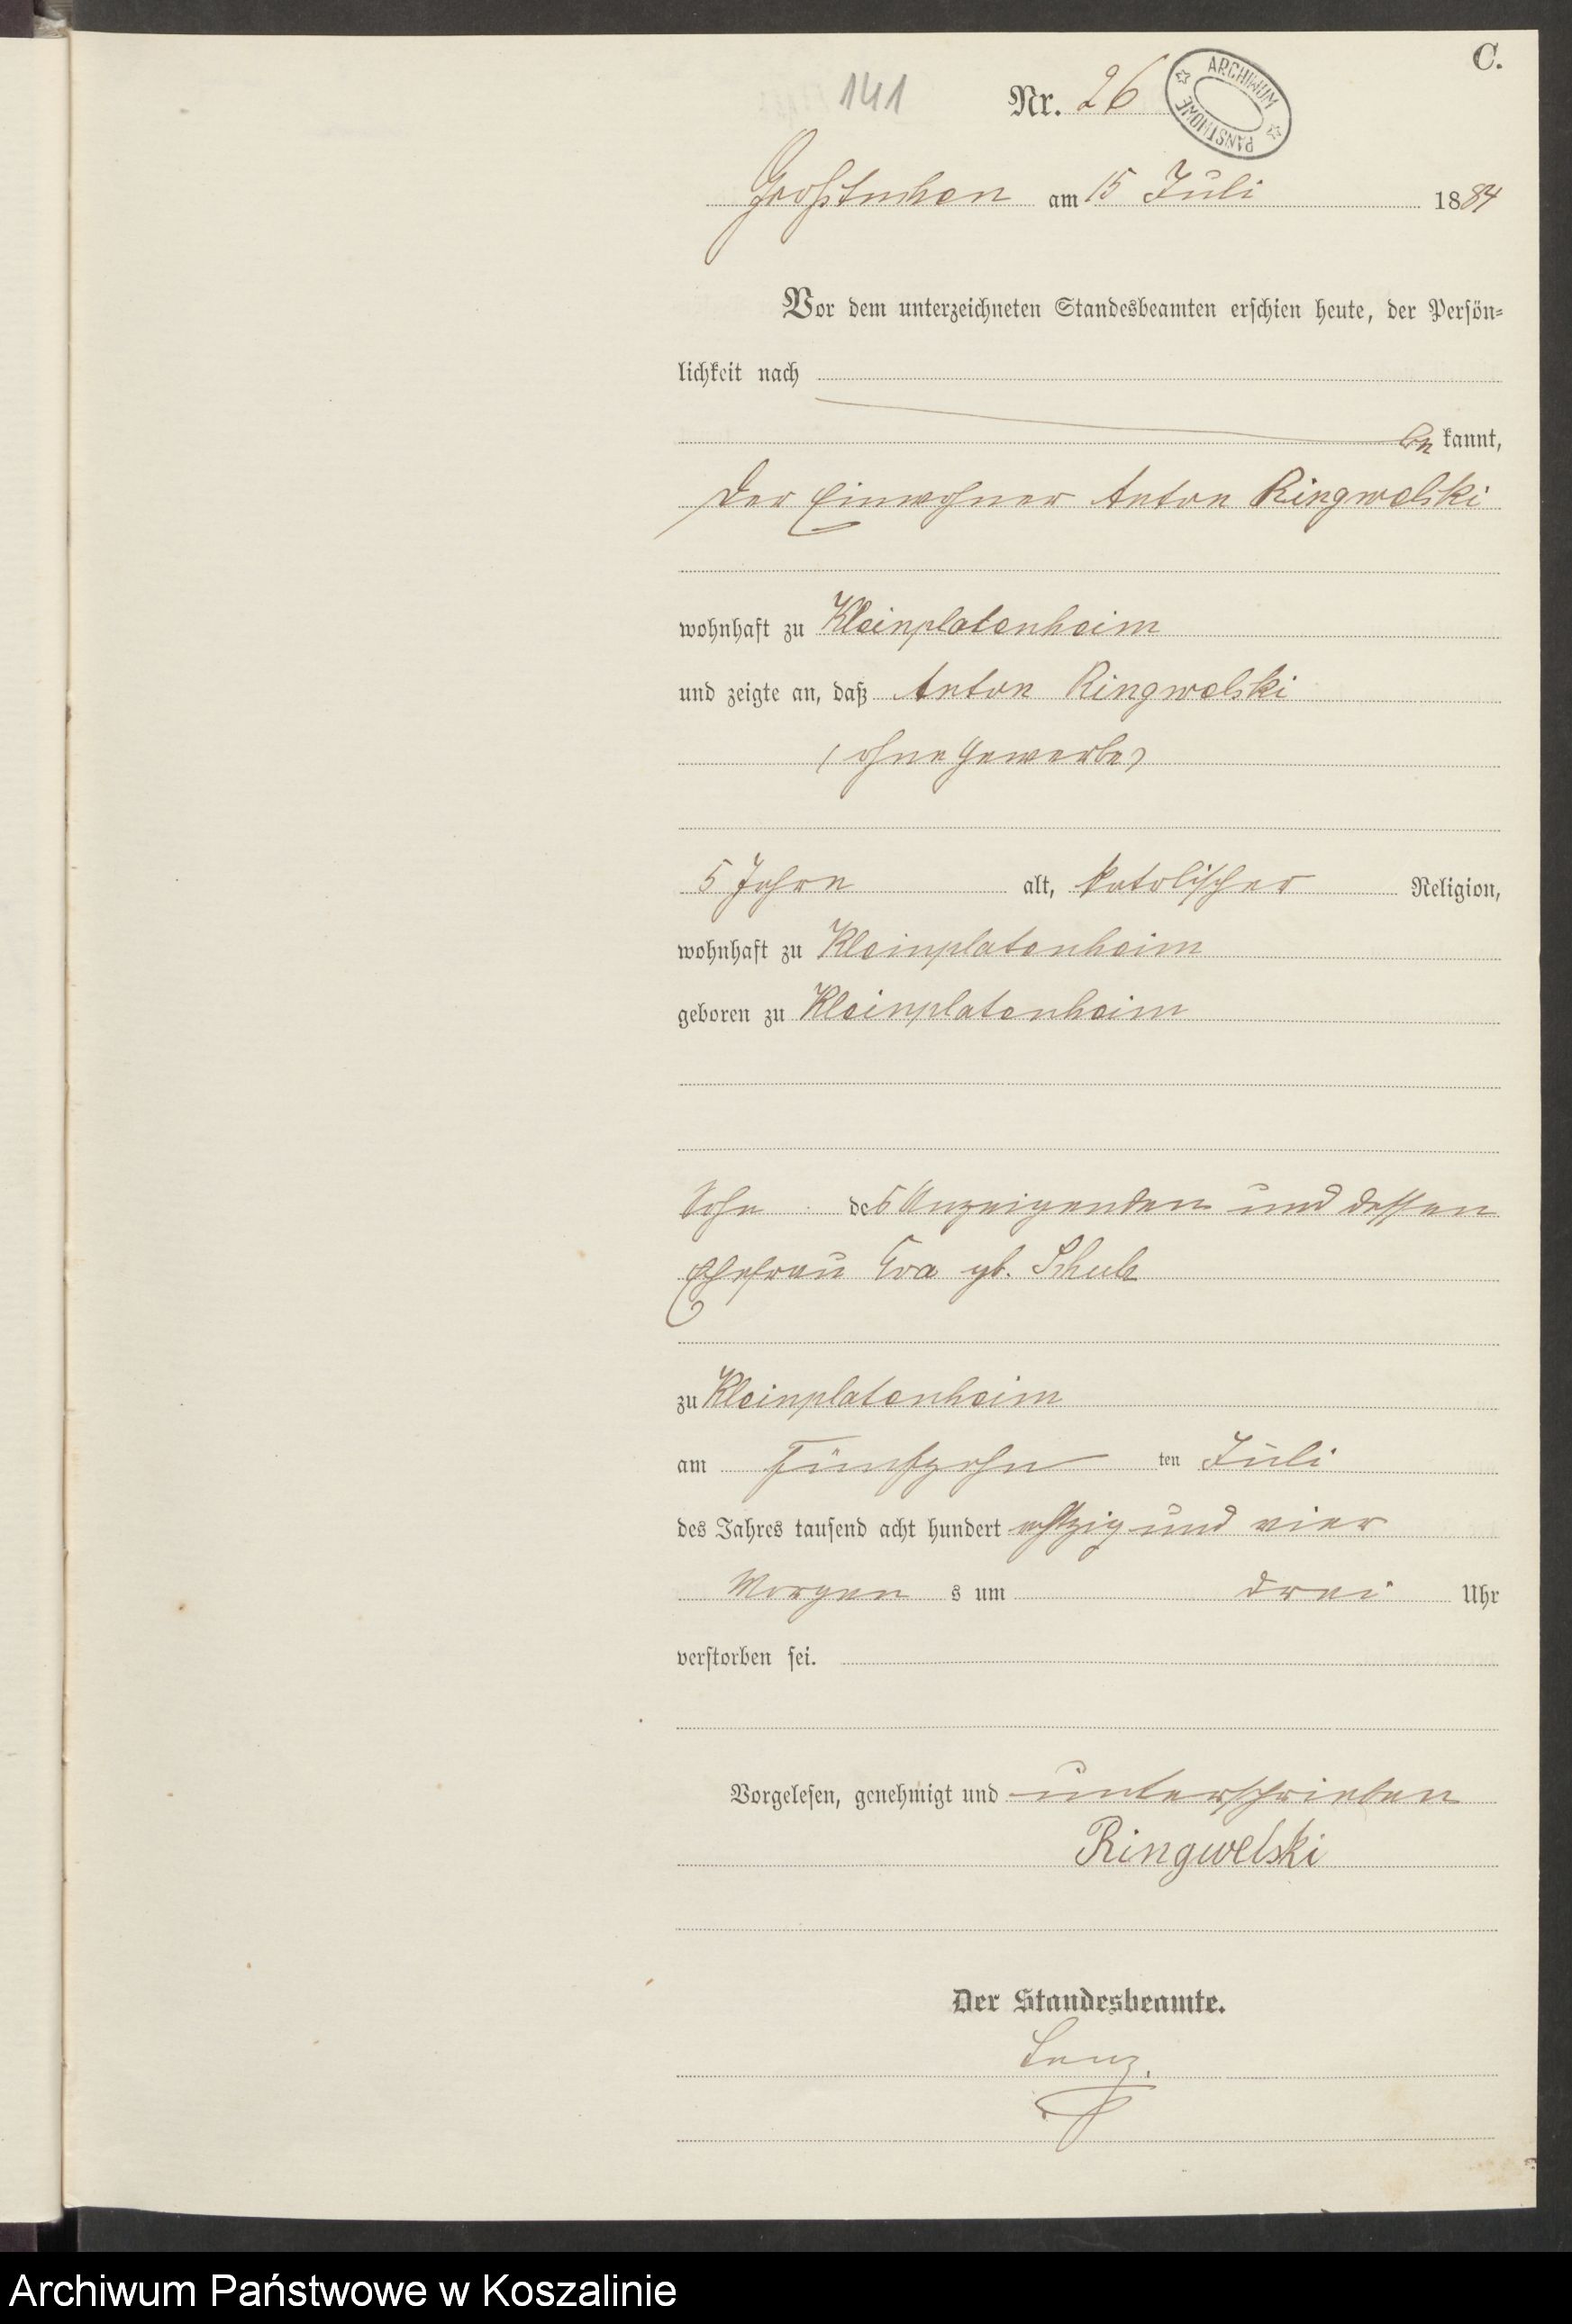 C.
141
Nr. 26
ARCHIWUM PAŃSTWOWE
Großtuchen am 15 Juli 1884
Vor dem unterzeichneten Standesbeamten erschien heute, der Persön-
lichkeit nach
be kannt,
der Einwohner Anton Ringwelski
wohnhaft zu Kleinplatenheim
und zeigte an, daß Anton Ringwelski
(ohne Gewerbe)
5 Jahre alt, katolischer Religion,
wohnhaft zu Kleinplatenheim
geboren zu Kleinplatenheim
Sohn des Anzeigenden und dessen
Ehefrau Eva gb.
zu Kleinplatenheim
am Fünfzehn ten Juli
des Jahres tausend acht hundert achtzig und vier
Morgen s um drei Uhr
verstorben sei.
Vorgelesen, genehmigt und unterschrieben
Ringwelski
Der Standesbeamte.
Lenz.
Archiwum Państwowe w Koszalinie